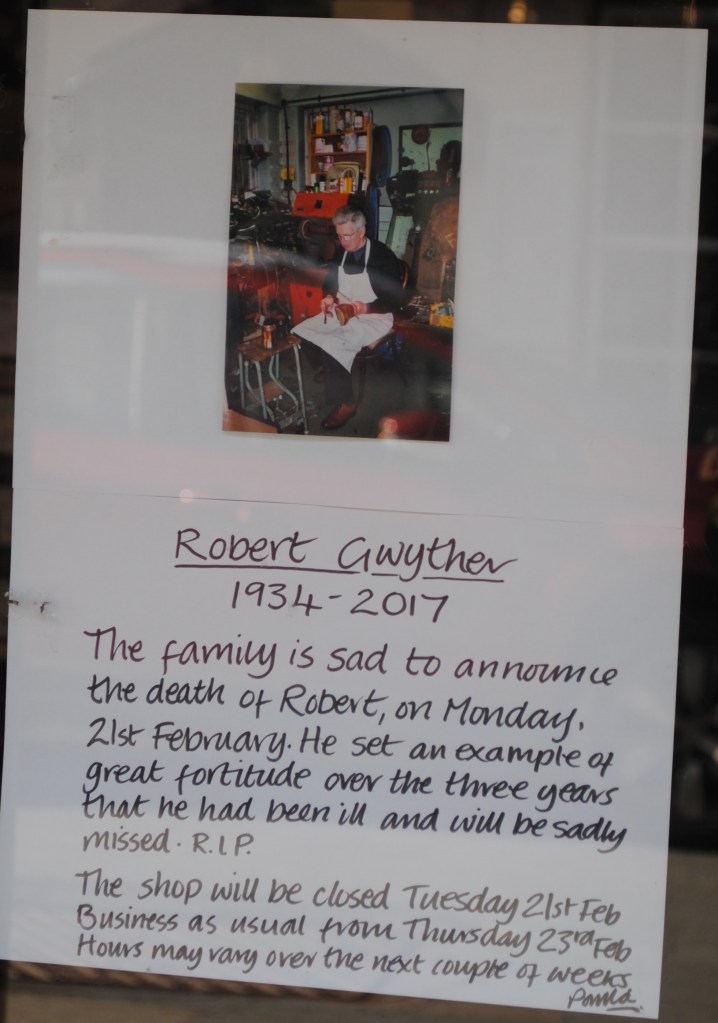 Robert Gwyther
1934-2017
The family is sad to announce
the death of Robert, on Monday,
21st February. He set an example of
great fortitude over the three years
that he had been ill and will be sadly
missed. R.I.P.
The shop will be closed Tuesday 21st Feb
Business as usual from Thursday 23rd Feb
Hours may vary over the next couple of weeks
Paula.